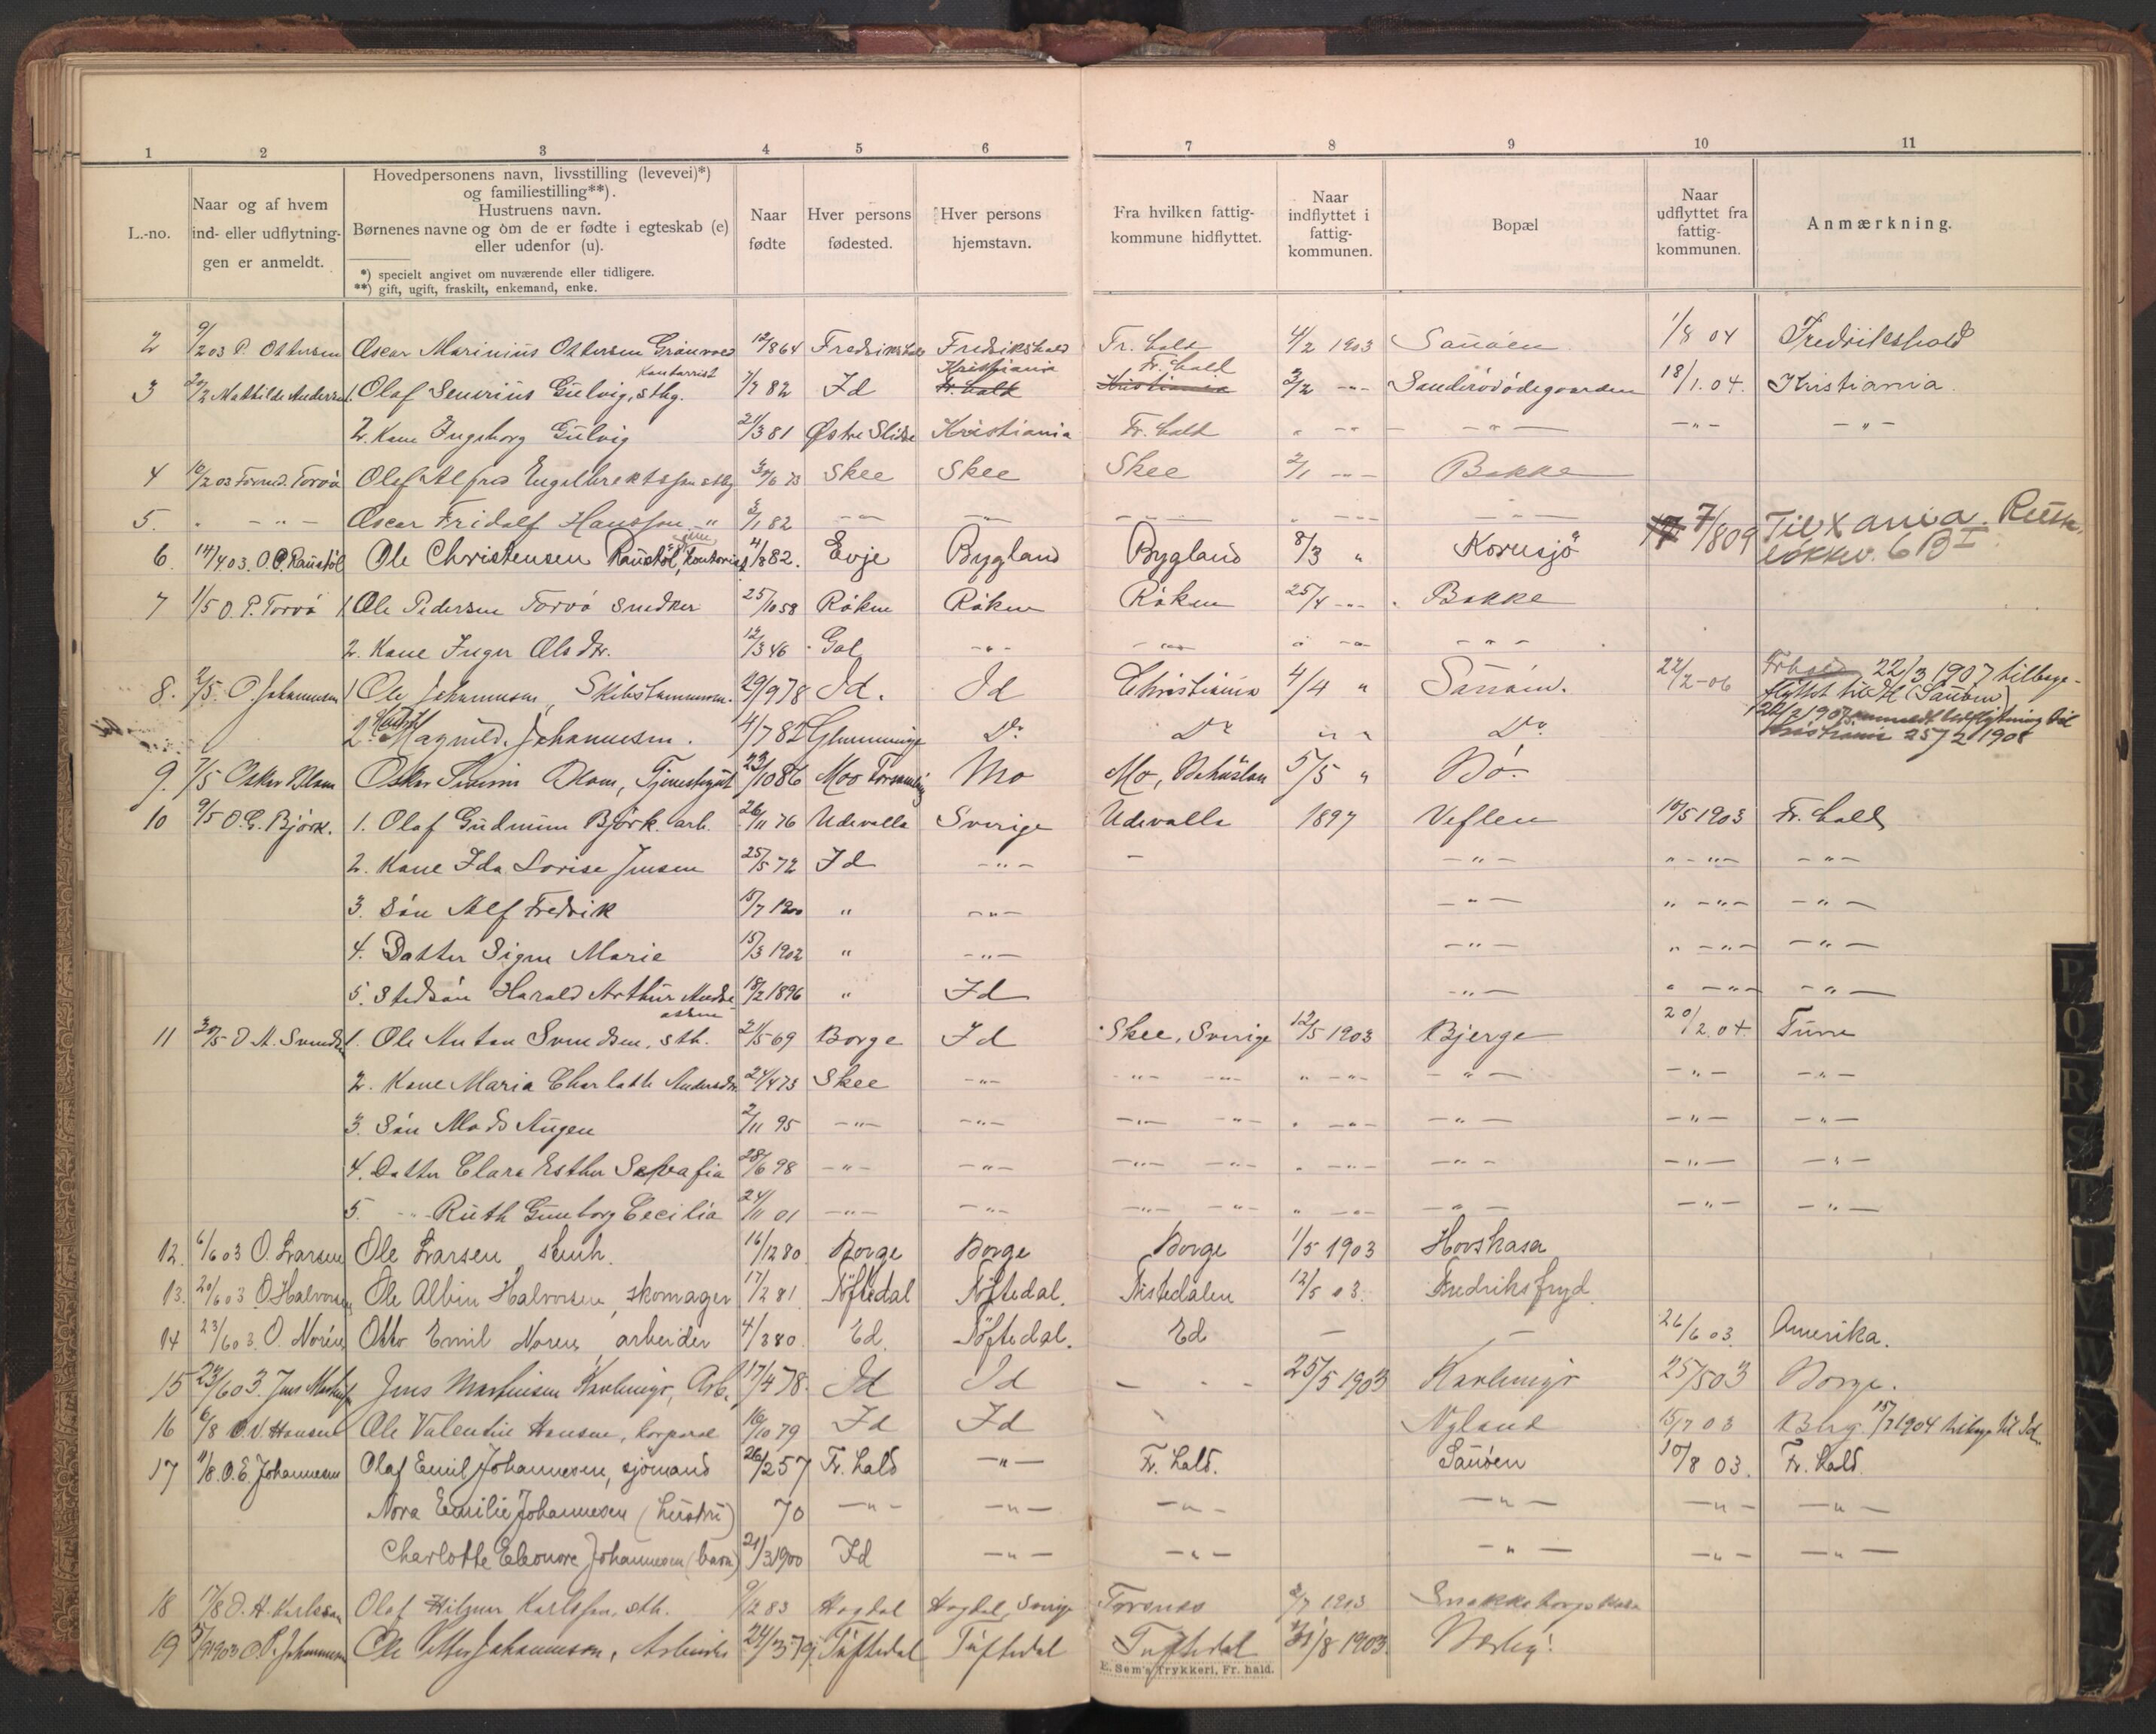 1 2 3 4 5 6 7 8 9 10 11
L.-no.
Naar og af hvem
ind- eller udflytnin-
gen er anmeldt.
Hovedpersonens navn, livsstilling (levevei)*)
og familiestilling**).
Hustruens navn.
Børnenes navne og om de er fødte i egteskab (e)
eller udenfor (u).
*) specielt angivet om nuværende eller tidligere.
**) gift, ugift, fraskilt, enkemand, enke.
Naar
fødte
Hver persons
fødested.
Hver persons
hjemstavn.
Fra hvilken fattig-
kommune hidflyttet.
Naar
indflyttet i
fattig-
kommunen.
Bopæl
Naar
udflyttet fra
fattig-
kommunen.
Anmærkning.
2 9/2 03 P. Ottersen Oscar Marinius Ottersen 12/8 64 Fredrikshald Fredrikshald Fr. hald 4/2 1903 Sauøen 1/8 04 Fredrikshald
Kontorrist Kristiania Fr. hald
3 Mathilde Andersen 1. Olaf Severius Gulvig, sthg. 7/7 82 Id Fr. hald Kristiania 3/2 -"- 18/1 04. Kristiania
2. Kone Ingeborg Gulvig 21/3 81 Østre Slidre Kristiania Fr. hald " -"- -"- -"- -"-
4 10/2 03 Torvø Olaf Alfred Engelbrektsson sthg 30/6 73 Skee Skee Skee 2/1 -"- Bakke
5. " -"- Oscar Fridolf Hansson " 3/1 82 -"- -"- -"- " -"- -"-
6. 14/4 03. O. C. Raustøl Ole Christensen Raustøl, Kontorist 4/8 82. Evje Bygland Bygland 8/3 " Kornsjø 7/8 09 Til Xania.
løkkv. 6 B I
7 1/5 O. P. Torvø 1. Ole Pedersen Torvø Snedker 25/10 58 Røken Røken Røken 25/4 -"- Bakke
2. Kone Inger Olsdtr. 12/3 46 Gol -"- -"- " -"- -"-
8. 2/5. O. Johannesen 1 Ole Johannesen, Skibstømmerm. 29/9 78 Id. Id Christiania 4/4 " Sauøen. 22/2-06 22/3 1907 tilbage-
flyttet til Id (Sauøen)
2. Hustru Magnild. Johannesen. 4/7 82 Glemminge Do Do " " Do
25/2 1908
9. 7/5 Oskar Olsson Oskar Olsson, Tjenestegut 23/10 86 Moo Forsamling Mo Mo, Bohuslen 5/5 " Bø.
10 9/5 O. G. Bjørk. 1. Olaf Gudmun Bjørk. arb. 26/11 76 Udevalla Sverige Udevalla 1897 Veflen 10/5 1903 Fr. hald
2. Kone Ida Lovise Jensen 25/5 72 Id -"- - -"- " -"- -"-
3. Søn Alf Fredrik 15/7 1900 " -"- -"- " -"- -"-
4. Datter Signe Marie 15/3 1902 " -"- -"- " -"- -"-
5. Stedsøn Harald Arthur Andre- 18/2 1896 " Id -"- " -"- -"-
assen
11 30/5 O A. Svendsen 1. Ole Anton Svendsen, sth. 21/5 69 Borge Id Skee, Sverige 12/5 1903 Bjerge 20/2 04 Tune
2. Kone Maria Charlotte Andersdtr 24/4 73 Skee -"- -"- -"- " -"- -"- -"- -"-
3. Søn Mads Augen 2/11 95 -"- -"- -"- -"- " -"- -"- -"- -"-
4. Datter Clara Esther 28/6 98 -"- -"- -"- -"- " -"- -"- -"- -"-
5. -"- Ruth Gunborg Cecilia 24/11 01 -"- -"- -"- -"- " -"- -"- -"- -"-
12. 6/6 03 O. Larsen Ole Larsen, stenh. 16/12 80 Borge Borge Borge 1/5 1903 Hovskasa
13. 20/6 03 O Halvorsen Ole Albin Halvorsen, skomager 17/2 81 Töftedal Töftedal. Tistedalen 12/5 03. Fredriksfryd
14 23/6 03. O. Noren Otto Emil Noren, arbeider 4/3 80 Ed. Töftedal. Ed - - 26/6 03. Amerika.
15 23/6 03. Jens Martinsen Jens Martinsen Karlmyr, Arb. 17/4 78. Id Id - - - 25/5 1903 Karlmyr 25/5 03 Borge.
16 6/8 O. V. Hansen Ole Valentin Hansen, Korporal 10/10 79 Id Id Nyland 15/7 03 Berg. 15/7 1904 tilbage til Id
17 11/8. O. E. Johannesen Olaf Emil Johannesen, sjømand 26/2 57 Fr. hald -"- Fr. hald. Sauøen 10/8 03. Fr. hald
Nora Emilie Johannesen (hustru) 70 -"- -"- -"- -"- -"- -"-
Charlotte Eleonore Johannesen (barn) 21/3 1900 Id -"- -"- -"- -"- -"-
18 17/8 O. H. Karlsson Olaf Hilmer Karlsson, sth. 9/12 83 Hogdal Hogdal, Sverige Torsnes 2/7 1903
19 O. P. Johannesson Ole Petter Johannesson, Arbeider 24/3 79. Töftedal Töftedal Töftedal 31/8 1903. Nørby.
E. Sem's Trykkeri, Fr. hald.
P
Q
R
S
T
U
V